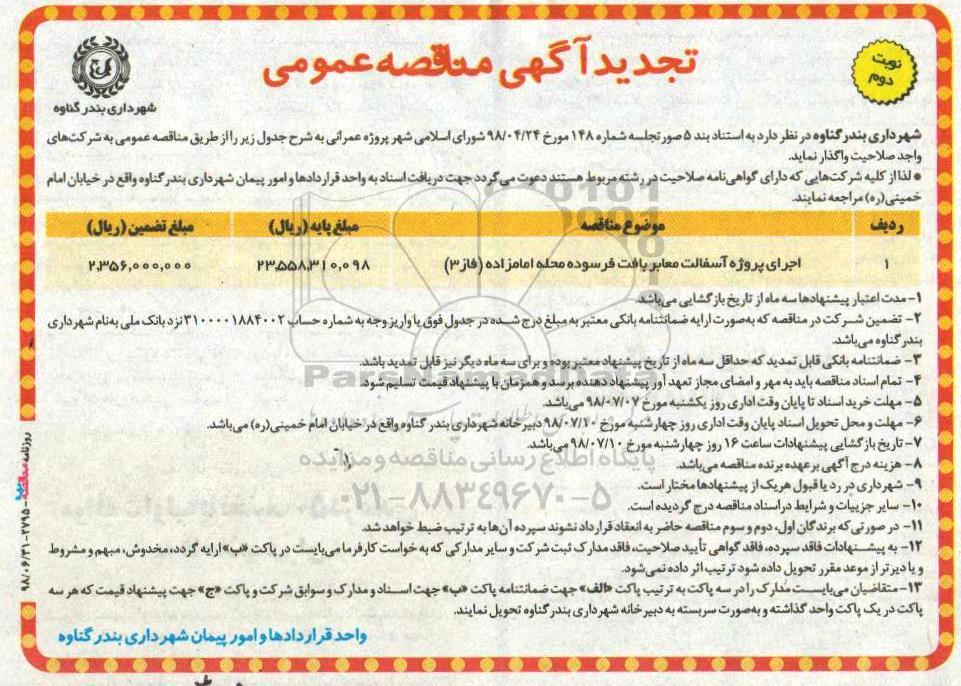 نوبت دوم
تجدید آگهی مناقصه عمومی
شهرداری بندر گناوه
شهرداری بندر گناوه در نظر دارد به استناد بند ۵ صورتجلسه شماره ۱۴۸ مورخ ۹۸/۰۴/۲۴ شورای اسلامی شهر پروژه عمرانی به شرح جدول زیر را از طریق مناقصه عمومی به شرکت‌های
واجد صلاحیت واگذار نماید.
● لذا از کلیه شرکت‌هایی که دارای گواهی‌نامه صلاحیت در رشته مربوط هستند دعوت می‌گردد جهت دریافت اسناد به واحد قراردادها و امور پیمان شهرداری بندر گناوه واقع در خیابان امام
خمینی(ره) مراجعه نمایند.
ردیف موضوع مناقصه مبلغ پایه (ریال) مبلغ تضمین (ریال)
۱ اجرای پروژه آسفالت معابر بافت فرسوده محله امامزاده (فاز۳) ۲۳،۵۵۸،۳۱۰،۰۹۸ ۲،۳۵۶،۰۰۰،۰۰۰
۱- مدت اعتبار پیشنهادها سه ماه از تاریخ بازگشایی می‌باشد.
۲- تضمین شرکت در مناقصه که به‌صورت ارایه ضمانتنامه بانکی معتبر به مبلغ درج شده در جدول فوق یا واریز وجه به شماره حساب ۳۱۰۰۰۰۱۸۸۴۰۰۲ نزد بانک ملی به‌نام شهرداری
بندر گناوه می‌باشد.
۳- ضمانتنامه بانکی قابل تمدید که حداقل سه ماه از تاریخ پیشنهاد معتبر بوده و برای سه ماه دیگر نیز قابل تمدید باشد.
۴- تمام اسناد مناقصه باید به مهر و امضای مجاز تعهد آور پیشنهاد دهنده برسد و همزمان با پیشنهاد قیمت تسلیم شود.
۵- مهلت خرید اسناد تا پایان وقت اداری روز یکشنبه مورخ ۹۸/۰۷/۰۷ می‌باشد.
۶- مهلت و محل تحویل اسناد پایان وقت اداری روز چهارشنبه مورخ ۹۸/۰۷/۱۰ دبیرخانه شهرداری بندر گناوه واقع در خیابان امام خمینی(ره) می‌باشد.
۷- تاریخ بازگشایی پیشنهادات ساعت ۱۶ روز چهارشنبه مورخ ۹۸/۰۷/۱۰ می‌باشد.
۸- هزینه درج آگهی بر عهده برنده مناقصه می‌باشد.
پایگاه اطلاع رسانی مناقصه و مزایده
۹- شهرداری در رد یا قبول هریک از پیشنهادها مختار است.
۰۲۱-۸۸۳۴۹۶۷۰-۵
۱۰- سایر جزییات و شرایط در اسناد مناقصه درج گردیده است.
۱۱- در صورتی که برندگان اول، دوم و سوم مناقصه حاضر به انعقاد قرارداد نشوند سپرده آن‌ها به ترتیب ضبط خواهد شد.
۱۲- به پیشنهادات فاقد سپرده، فاقد گواهی تأیید صلاحیت، فاقد مدارک ثبت شرکت و سایر مدارکی که به خواست کارفرما می‌بایست در پاکت «ب» ارایه گردد، مخدوش، مبهم و مشروط
و یا دیرتر از موعد مقرر تحویل داده شود ترتیب اثر داده نمی‌شود.
۱۳- متقاضیان می‌بایست مدارک را در سه پاکت به ترتیب پاکت «الف» جهت ضمانتنامه پاکت «ب» جهت اسناد و مدارک و سوابق شرکت و پاکت «ج» جهت پیشنهاد قیمت که هر سه
پاکت در یک پاکت واحد گذاشته و به‌صورت سربسته به دبیرخانه شهرداری بندر گناوه تحویل نمایند.
واحد قراردادها و امور پیمان شهرداری بندر گناوه
روزنامه مناقصه ۲۷۹۵- ۹۸/۰۶/۳۱